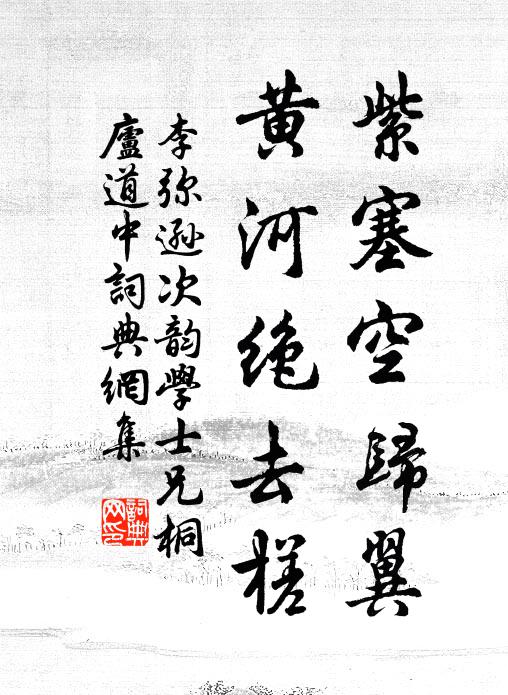 紫塞空歸翼
黃河絶去槎
李弥遜次韵學士兄桐
廬道中詞典網集
詞典
网印